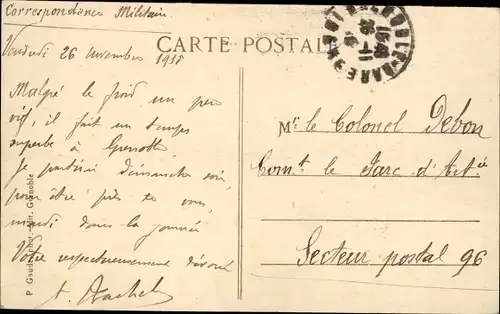 Correspondance Militaire
CARTE POSTALE
Vendredi 26 novembre 1915
Malgré le froid un peu
vif, il fait un temps
superbe à Grenoble
Je partirai dimanche soir,
pour être près de vous,
mardi dans la journée
Votre respectueusement dévoué
Mr. le Colonel Debon
Comt le Parc d'Artie
Secteur postal 96
Edit. Grenoble